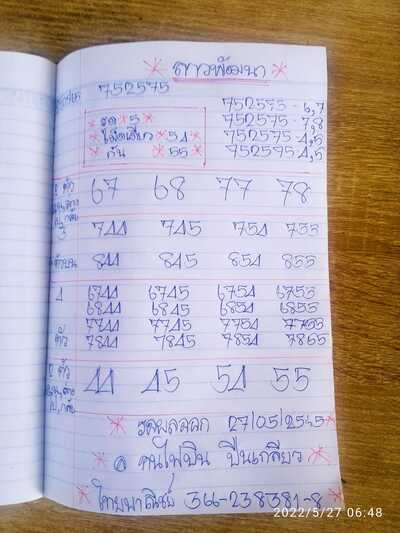 * ลาวพัฒนา *
752575
752575 - 6,7
752575 - 7,8
752575 4,5
752575 4,5
* รูด * 5 *
* เม็ดเดียว * 54 *
* กัน * 55 *
2 ตัว 67 68 77 78
3 744 745 754 755
ตัวบน 844 845 854 855
4 6744 6745 6754 6755
6844 6845 6854 6855
7744 7745 7754 7755
ตัว 7844 7845 7854 7855
2 ตัว 44 45 54 55
* 27/05/2565 *
* @ คนไฟบิน ปืนเกลียว *
* 366-238381-8 *
2022/5/27 06:48